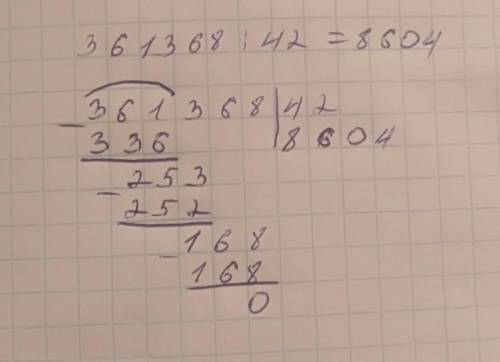 361368 : 42 = 8604
361368 | 42
- 336 8604
- 253
252
- 168
168
0